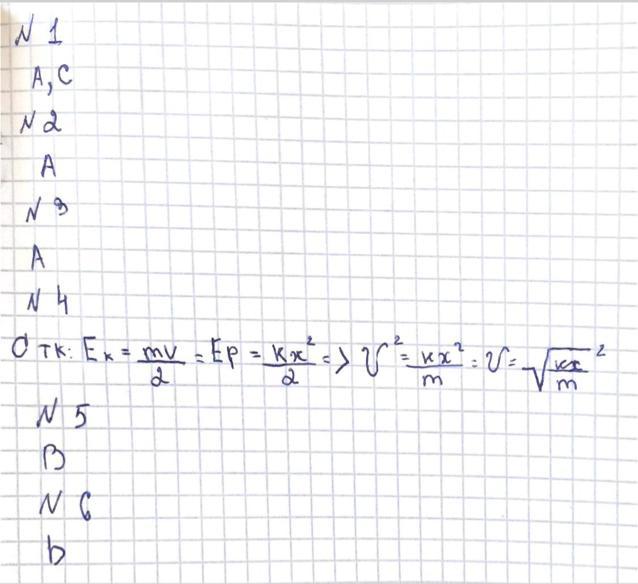 N 1
A, C
N 2
A
N 3
A
N 4
С тк: Eк = mv/2 = Ep = кx²/2 => v² = кx²/m = v = √(кx/m)²
N 5
B
N 6
b